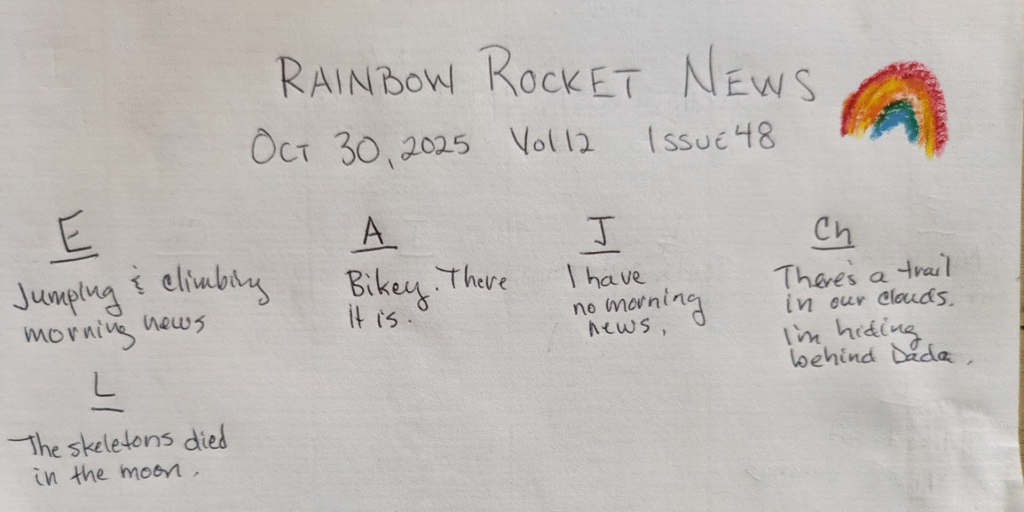 RAINBOW ROCKET NEWS
OCT 30, 2025 Vol 12 ISSUE 48
E
Jumping & climbing
morning news
A
Bikey. There
it is.
J
I have
no morning
news.
Ch
There's a trail
in our clouds.
I'm hiding
behind Dada.
L
The skeletons died
in the moon.